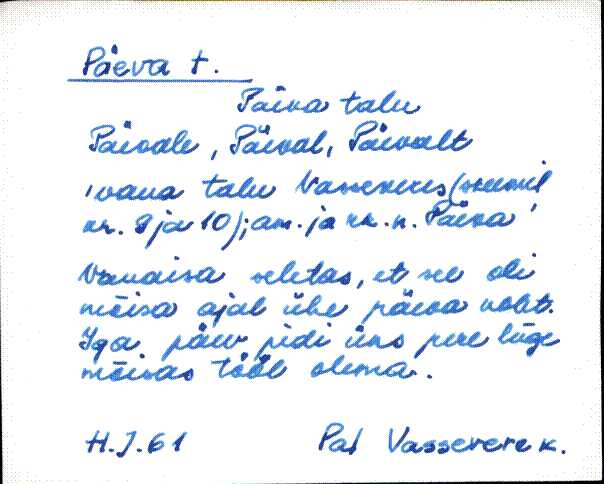 Päeva t.
Päiva talu
Päivale, Päival, Päivalt
'vana talu Vasseveres (
nr. 9 ja 10); am. ja rk. n. Päiva'
Vanaisa seletas, et see oli
mõisa ajal ühe päeva koht.
Iga päev pidi üks pere liige
mõisas tööl olema.
H.J.61 Pal Vassevere k.